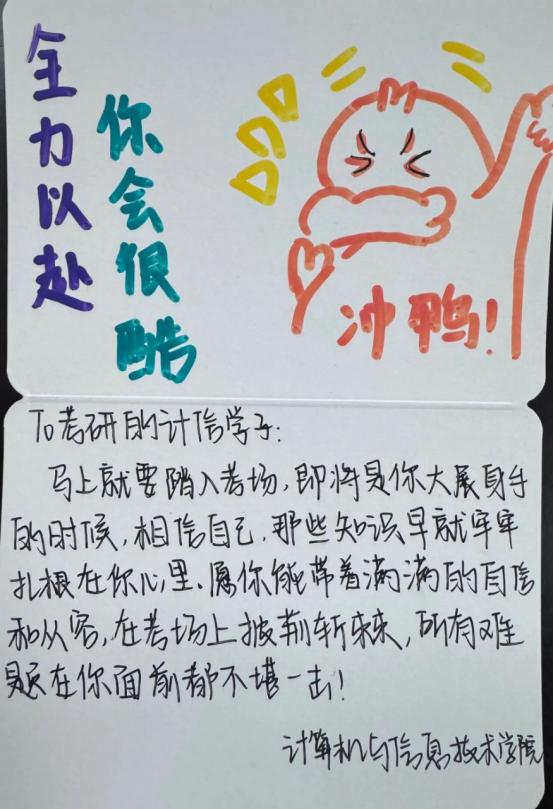 全力以赴
你会很酷
冲鸭!
To考研的计信学子:
马上就要踏入考场,即将是你大展身手
的时候,相信自己,那些知识早就牢牢
扎根在你心里、愿你能带着满满的自信
和从容,在考场上披荆斩棘,所有难
题在你面前都不堪一击!
计算机与信息技术学院